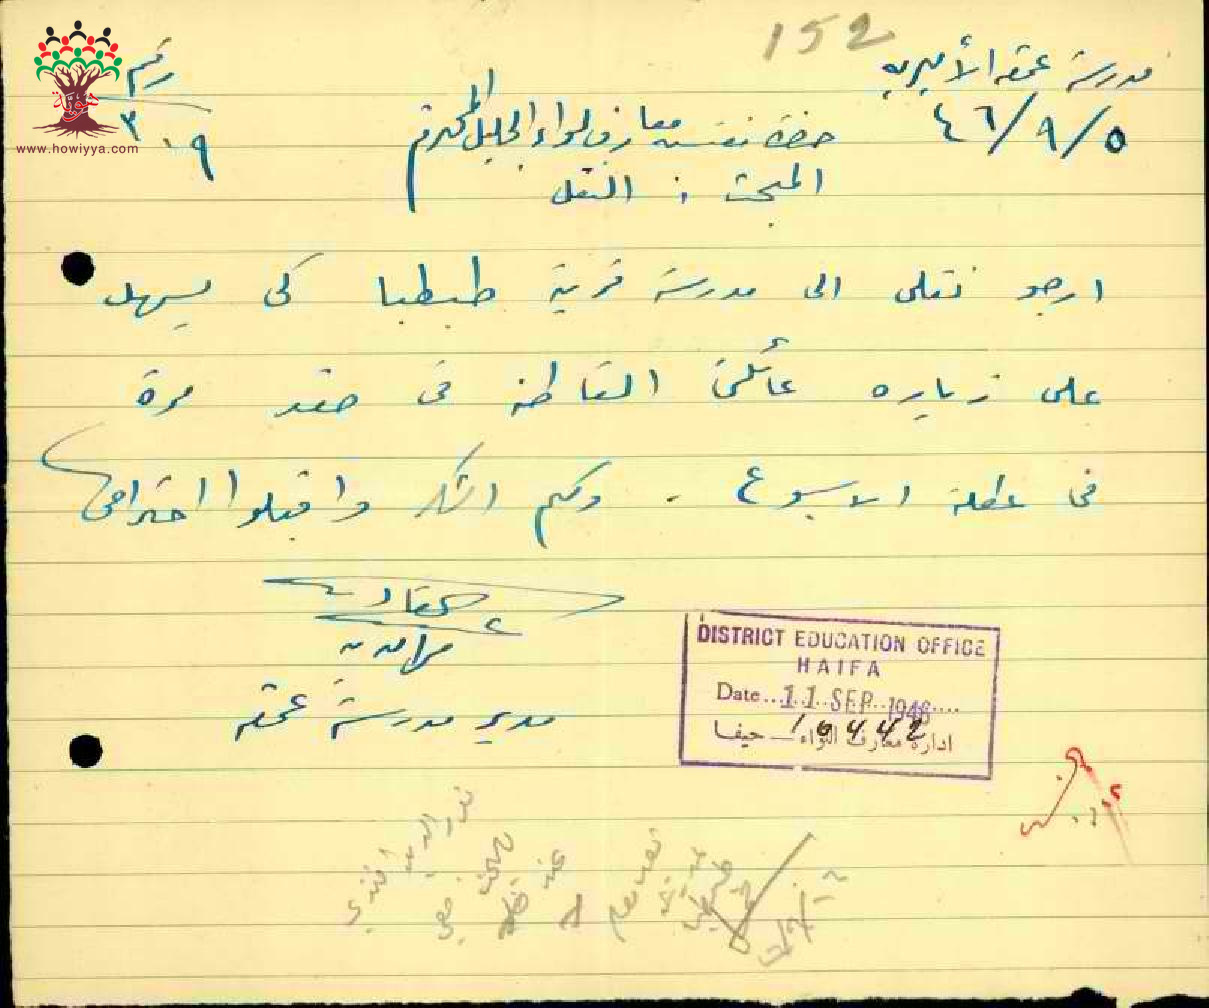 152
مدرسة عمقه الأميريه
رقم
٤٦/٩/٥
٣
١٠٩
www.howiyya.com
هوية
حضرة مفتش معارف لواء الجليل المحترم
المبحث : النقل
ارجو نقلي الى مدرسة قرية طيطبا كي يسهل
علي زياره عائلتي القاطنه في صفد مرة
في عطلة الاسبوع . ولكم الشكر واقبلوا احترامي
مدير مدرسة عمقه
DISTRICT EDUCATION OFFICE
HAIFA
Date... 11 SEP 1946
16442
ادارة معارف اللواء – حيفا